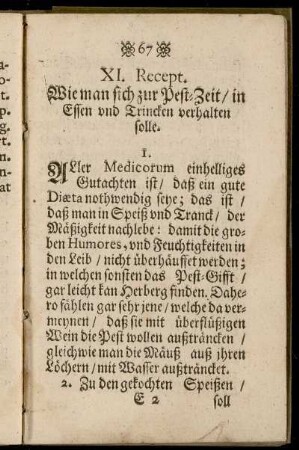 67
XI. Recept.
Wie man sich zur Pest-Zeit/ in
Essen vnd Trincken verhalten
solle.
1.
ALler Medicorum einhelliges
Gutachten ist/ daß ein gute
Diæta nothwendig seye; das ist/
daß man in Speiß vnd Tranck/ der
Mäßigkeit nachlebe: damit die gro-
ben Humores, vnd Feuchtigkeiten in
den Leib/ nicht überhäuffet werden;
in welchen sonsten das Pest-Gifft/
gar leicht kan Herberg finden. Dahe-
ro fählen gar sehr jene/ welche da ver-
meynen/ daß sie mit überflüßigen
Wein die Pest wollen außträncken/
gleichwie man die Mäuß auß ihren
Löchern/ mit Wasser außträncket.
2. Zu den gekochten Speißen/
E 2 soll